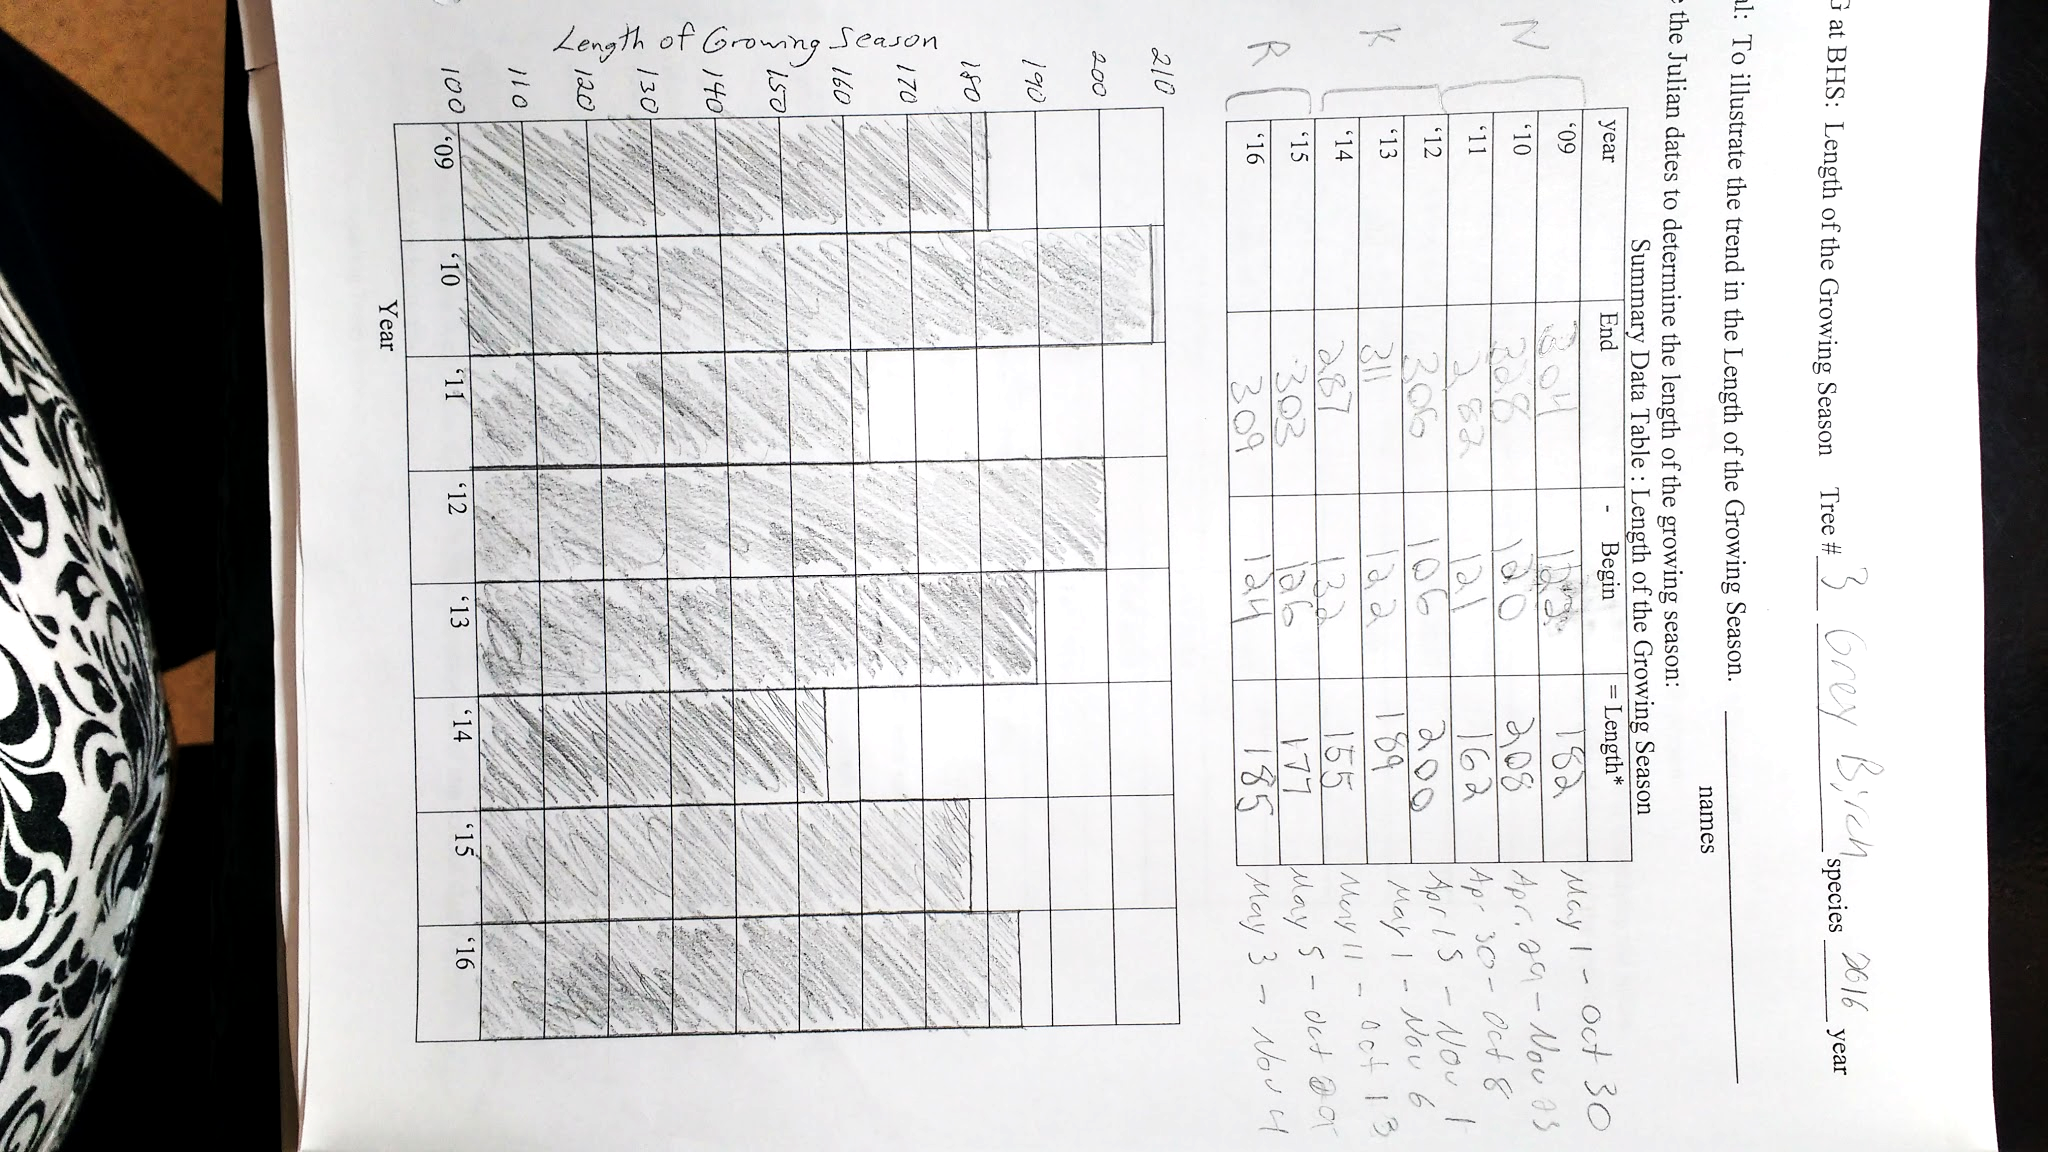 G at BHS: Length of the Growing Season Tree # 3 Grey Birch species 2016 year
al: To illustrate the trend in the Length of the Growing Season.
names
e the Julian dates to determine the length of the growing season:
Summary Data Table : Length of the Growing Season
year End - Begin = Length*
N
'09 304 122 182 May 1 - Oct 30
'10 328 120 208 Apr. 29 - Nov 23
'11 282 121 162 Apr 30 - Oct 8
'12 306 106 200 Apr 15 - Nov 1
K
'13 311 122 189 May 1 - Nov 6
'14 287 132 155 May 11 - Oct 13
R
'15 303 126 177 May 5 - Oct 29
'16 309 124 185 May 3 - Nov 4
Length of Growing Season
210
200
190
180
170
160
150
140
130
120
110
100
'09 '10 '11 '12 '13 '14 '15 '16
Year